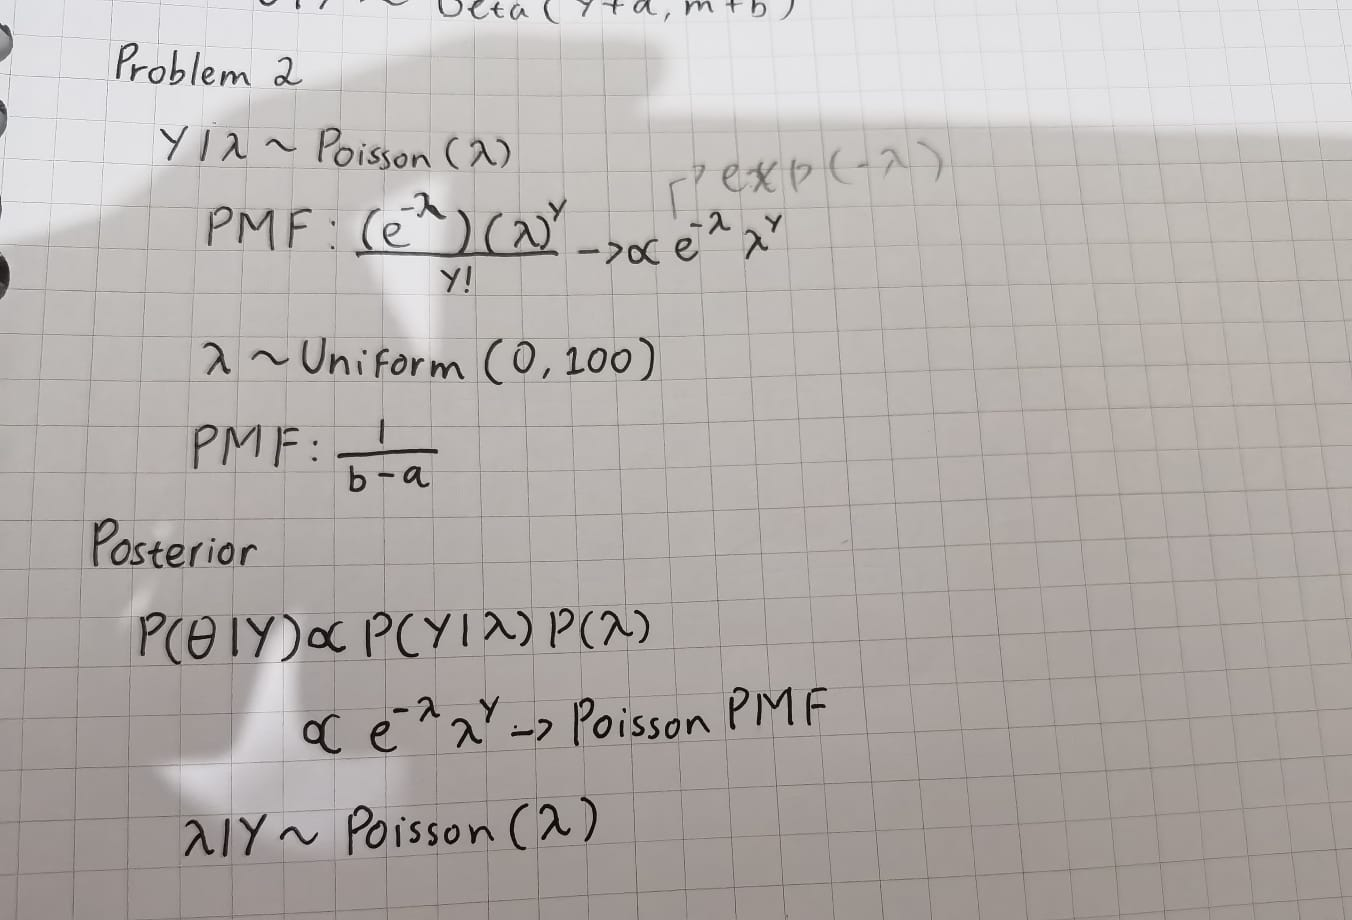 Beta(Y+a, m+b)
Problem 2
Y|λ ~ Poisson(λ)
exp(-λ)
PMF: (e^-λ)(λ)^Y / Y! -> ∝ e^-λ λ^Y
λ ~ Uniform (0, 100)
PMF: 1 / b-a
Posterior
P(θ|Y) ∝ P(Y|λ) P(λ)
∝ e^-λ λ^Y -> Poisson PMF
λ|Y ~ Poisson(λ)